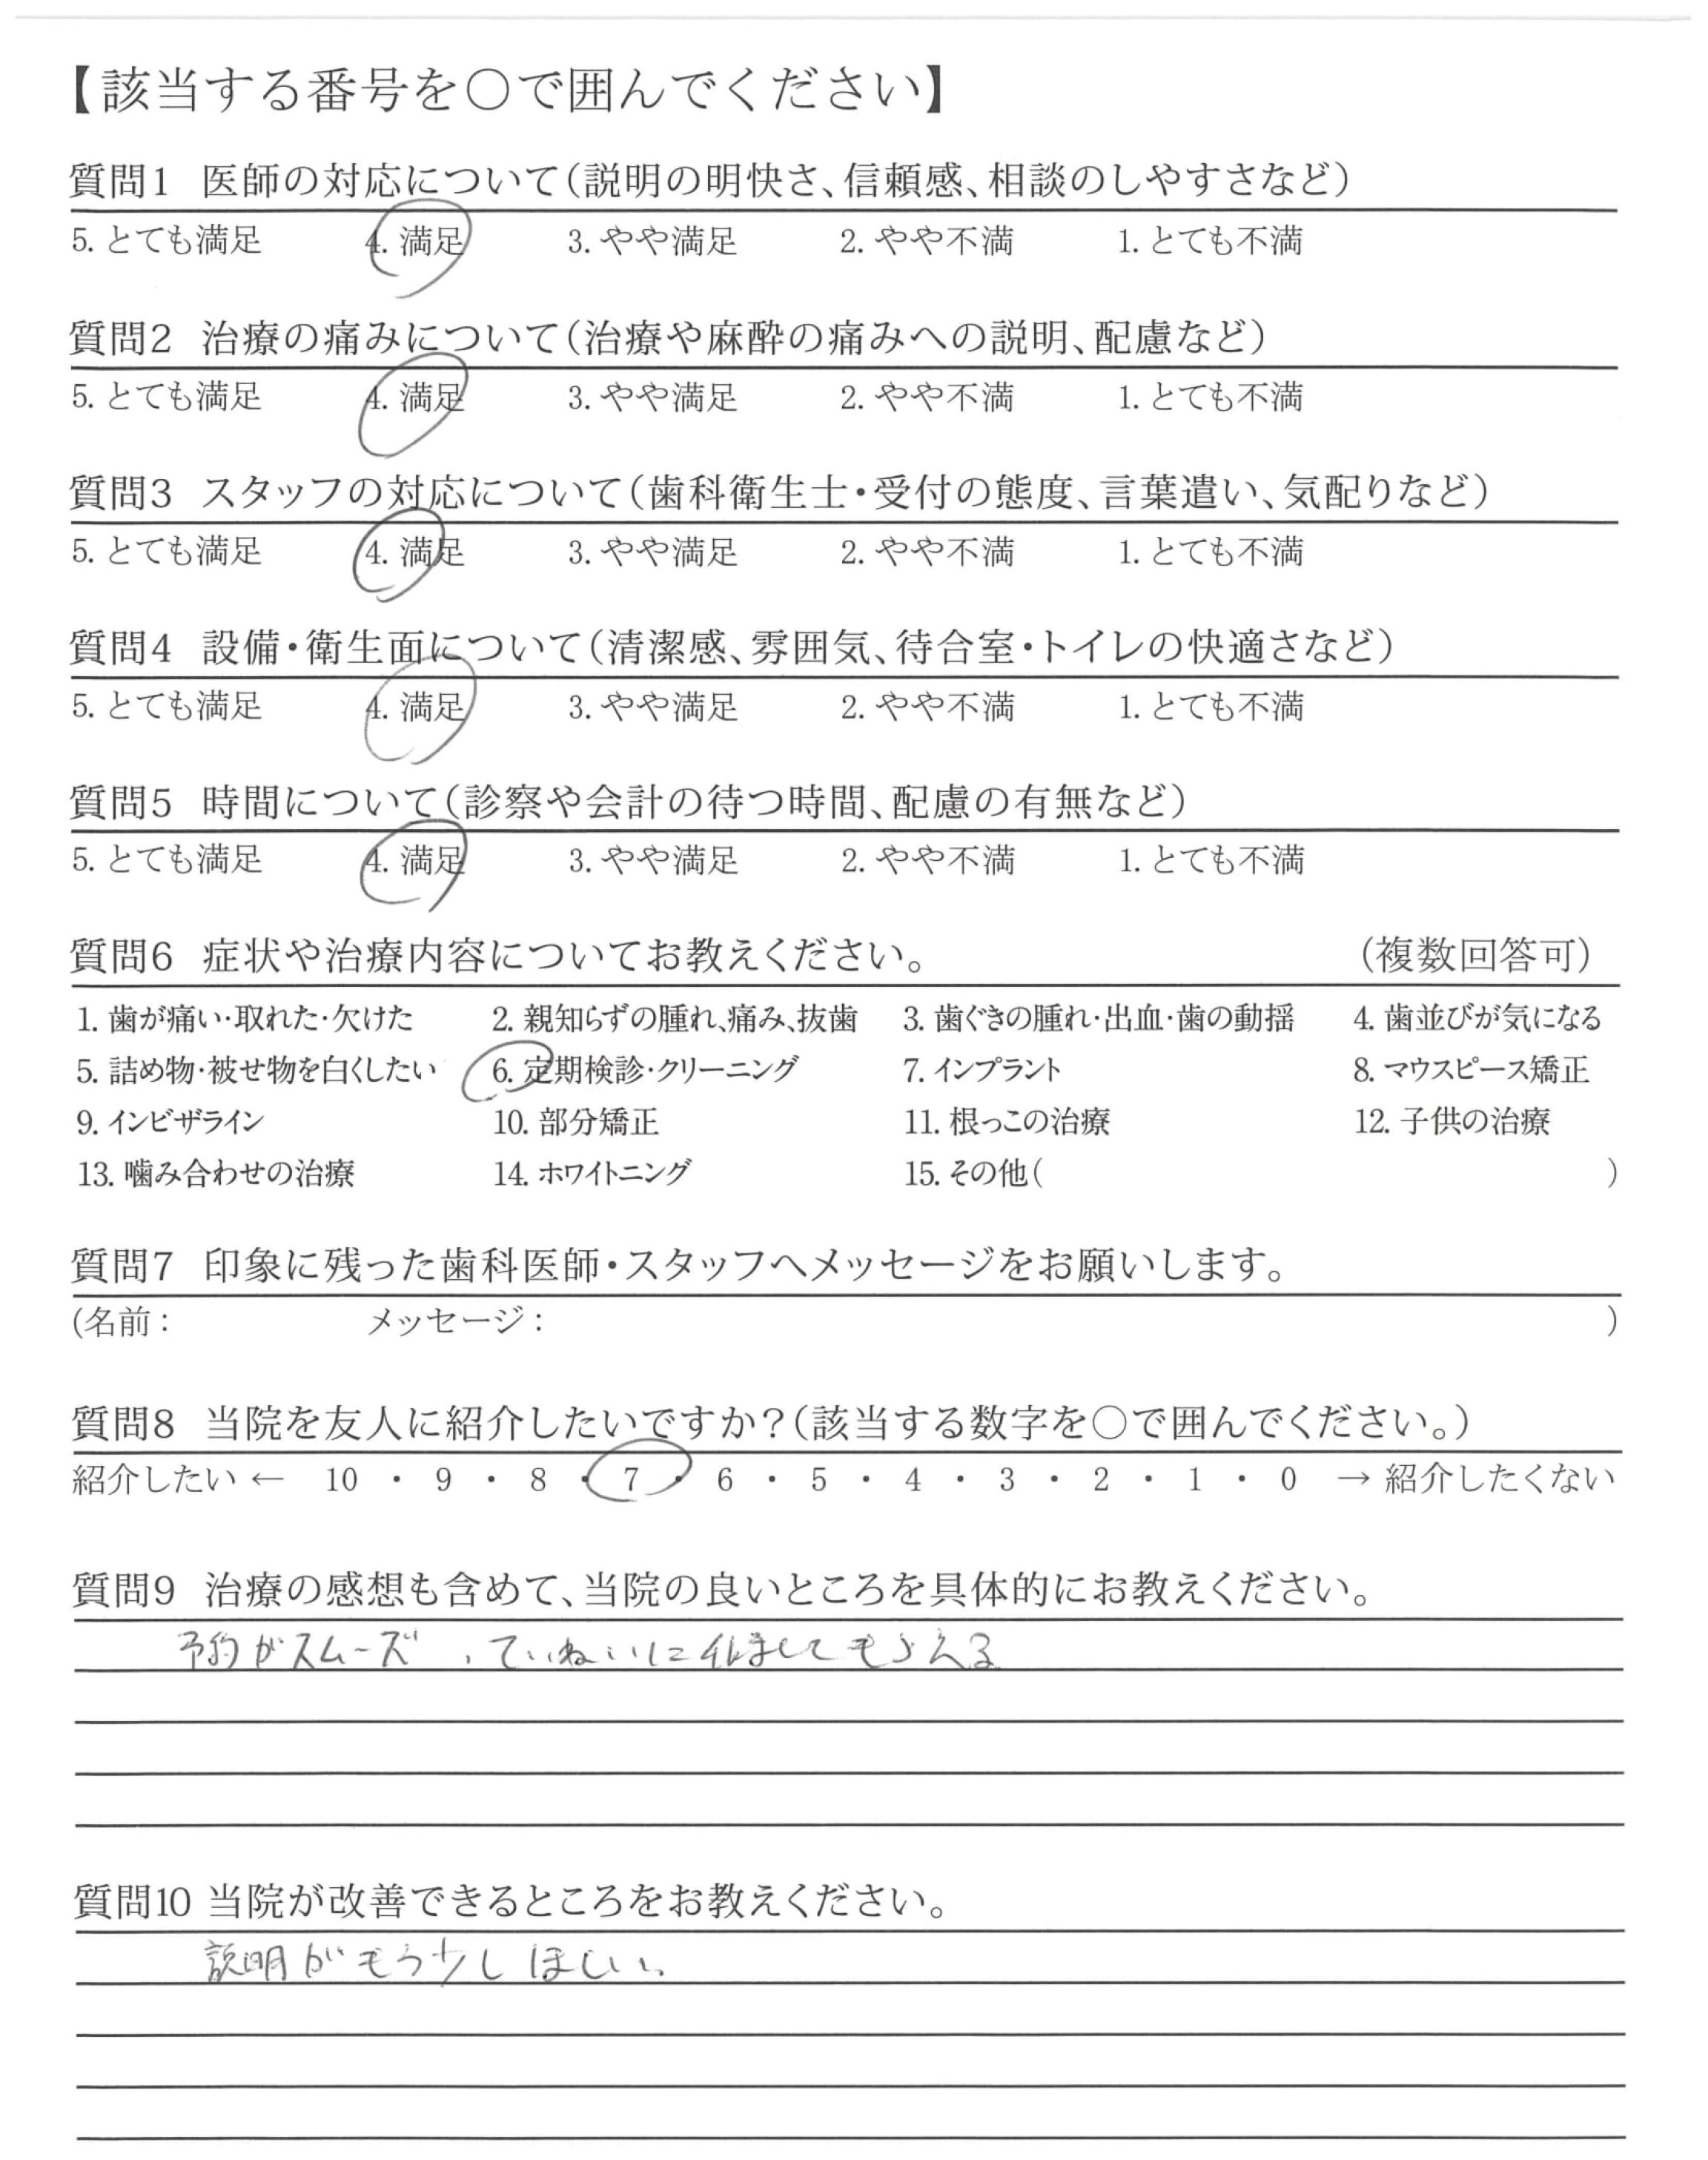 【該当する番号を○で囲んでください】
質問1 医師の対応について(説明の明快さ、信頼感、相談のしやすさなど)
5. とても満足 4. 満足 3. やや満足 2. やや不満 1. とても不満
質問2 治療の痛みについて(治療や麻酔の痛みへの説明、配慮など)
5. とても満足 4. 満足 3. やや満足 2. やや不満 1. とても不満
質問3 スタッフの対応について(歯科衛生士・受付の態度、言葉遣い、気配りなど)
5. とても満足 4. 満足 3. やや満足 2. やや不満 1. とても不満
質問4 設備・衛生面について(清潔感、雰囲気、待合室・トイレの快適さなど)
5. とても満足 4. 満足 3. やや満足 2. やや不満 1. とても不満
質問5 時間について(診察や会計の待つ時間、配慮の有無など)
5. とても満足 4. 満足 3. やや満足 2. やや不満 1. とても不満
質問6 症状や治療内容についてお教えください。 (複数回答可)
1. 歯が痛い・取れた・欠けた 2. 親知らずの腫れ、痛み、抜歯 3. 歯ぐきの腫れ・出血・歯の動揺 4. 歯並びが気になる
5. 詰め物・被せ物を白くしたい 6. 定期検診・クリーニング 7. インプラント 8. マウスピース矯正
9. インビザライン 10. 部分矯正 11. 根っこの治療 12. 子供の治療
13. 噛み合わせの治療 14. ホワイトニング 15. その他( )
質問7 印象に残った歯科医師・スタッフへメッセージをお願いします。
(名前: メッセージ: )
質問8 当院を友人に紹介したいですか?(該当する数字を○で囲んでください。)
紹介したい ← 10 ・ 9 ・ 8 ・ 7 ・ 6 ・ 5 ・ 4 ・ 3 ・ 2 ・ 1 ・ 0 → 紹介したくない
質問9 治療の感想も含めて、当院の良いところを具体的にお教えください。
予約がスムーズ、ていねいにしてもらえる
質問10 当院が改善できるところをお教えください。
説明がもう少しほしい。